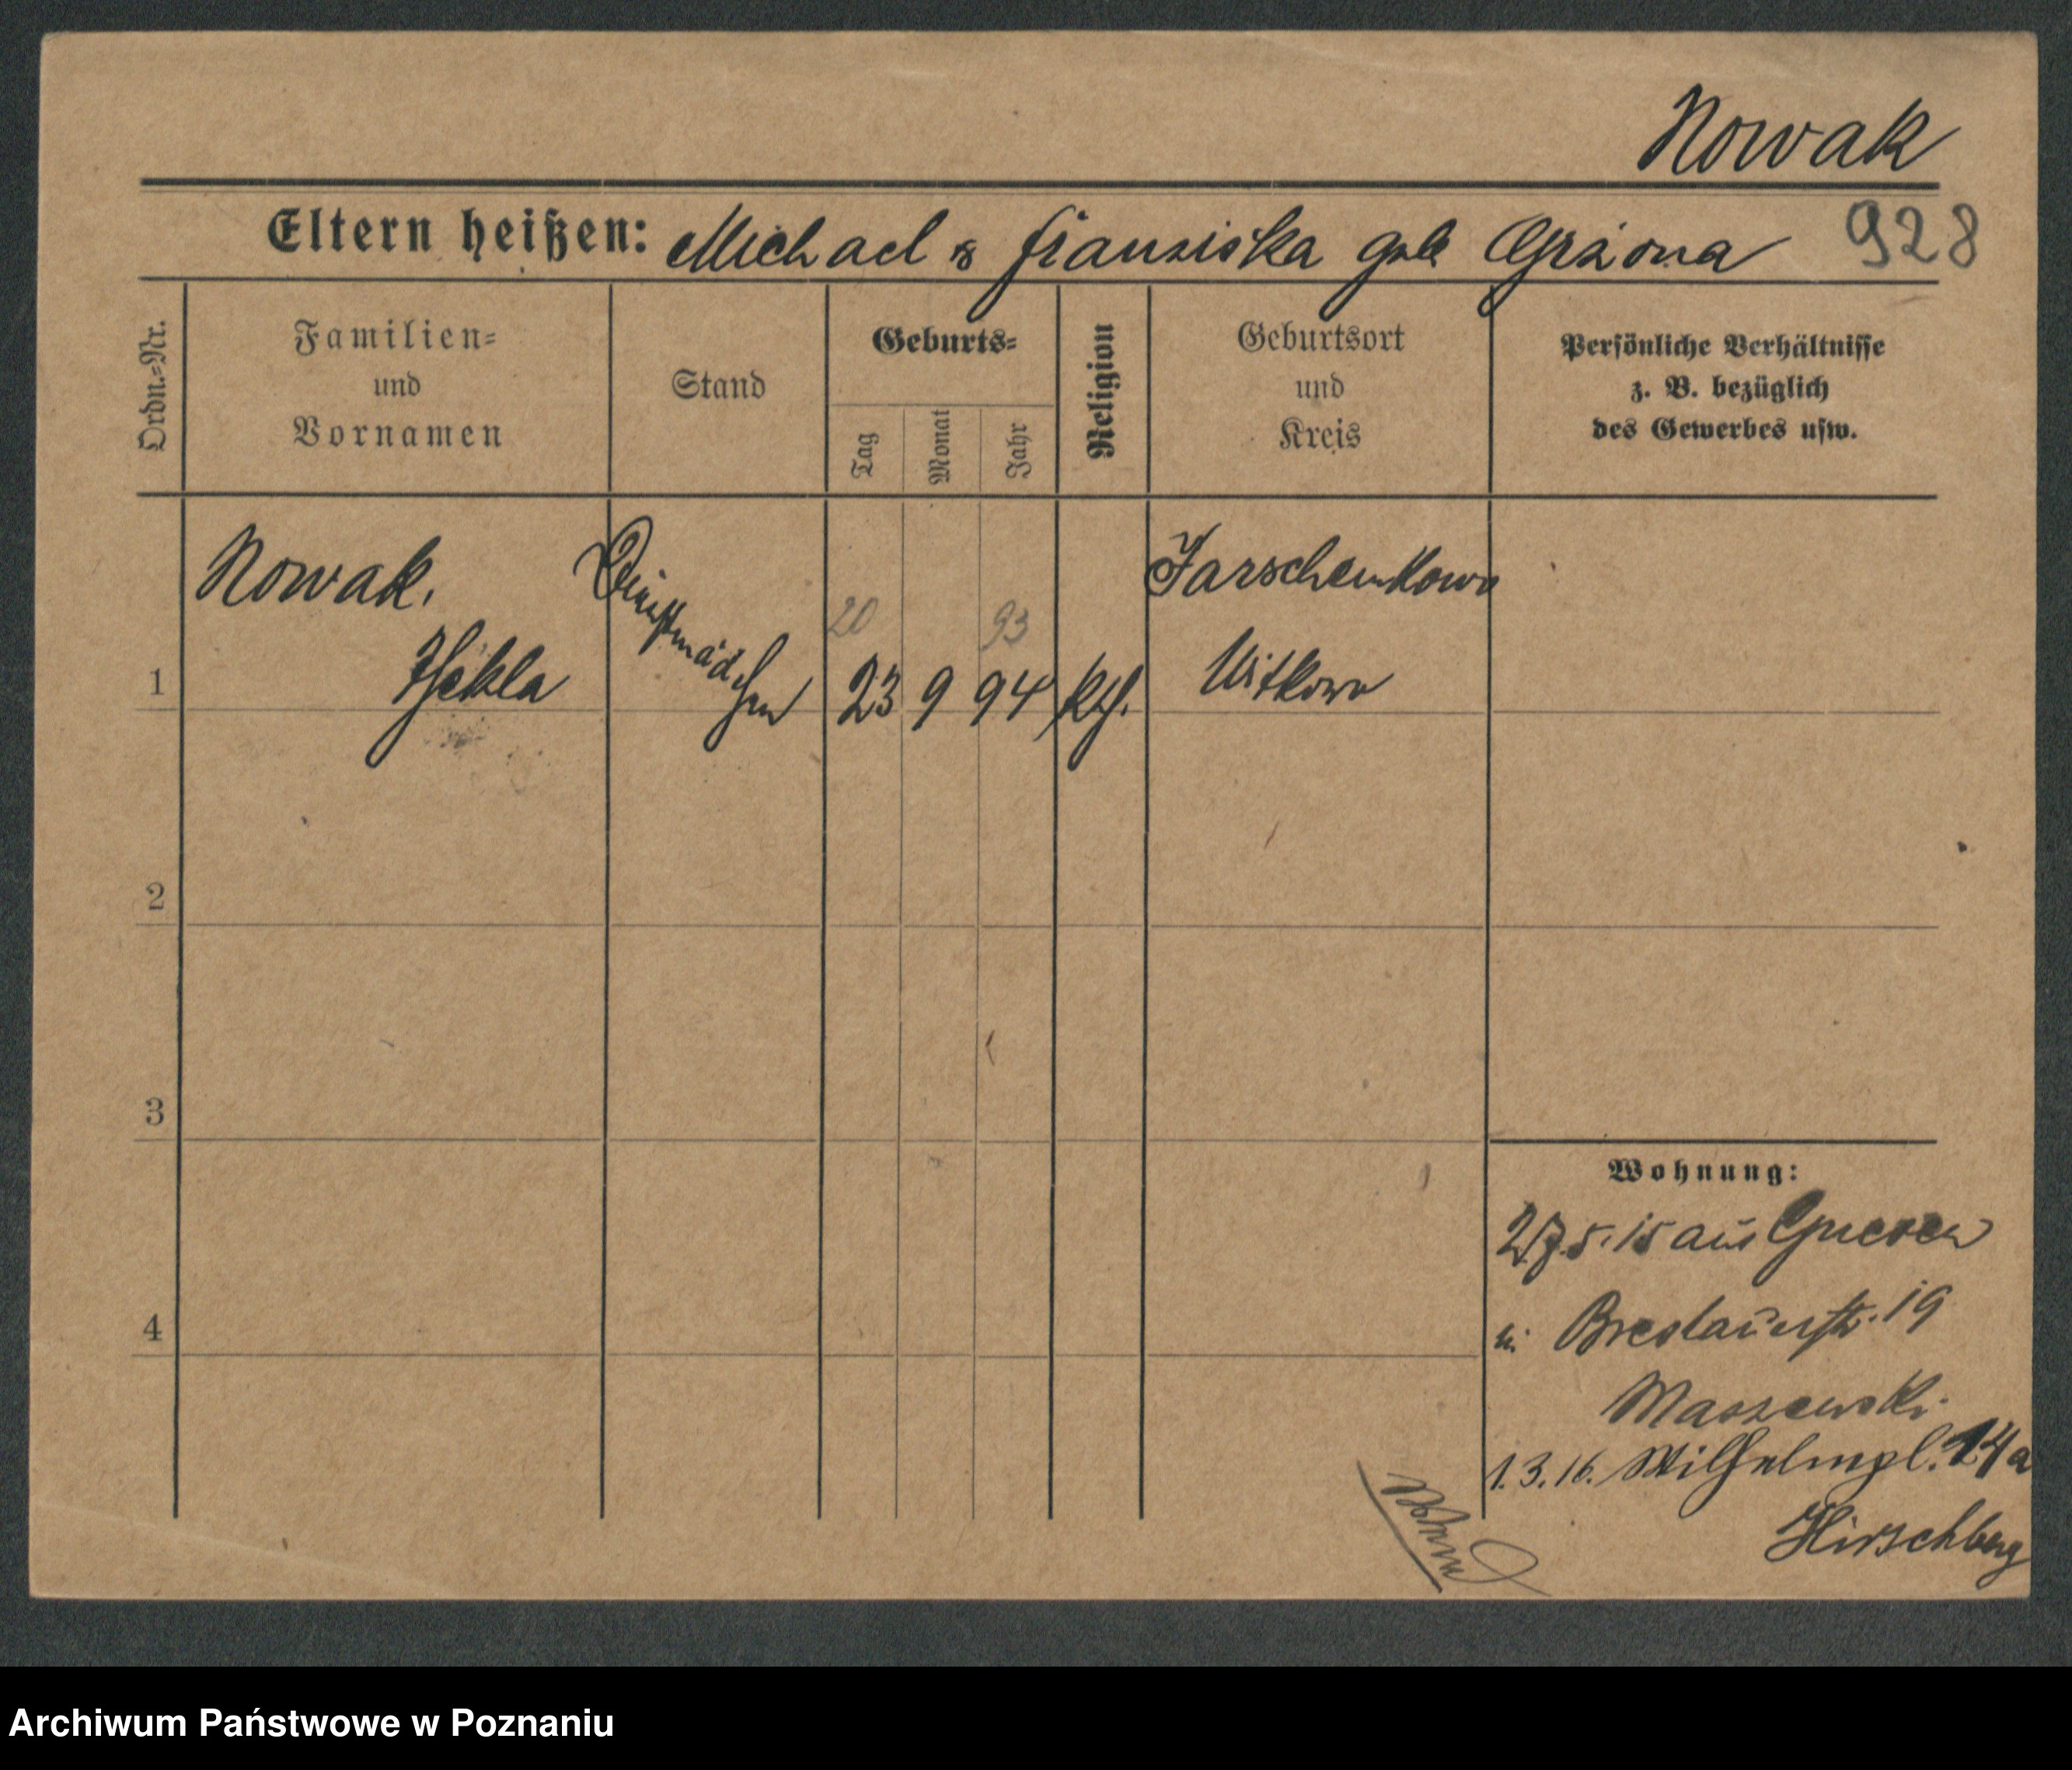 Nowak
Eltern heißen: Michael & Franziska geb Grzona 928
Ordn.-Nr.
Familien- und Vornamen
Stand
Geburts-
Tag
Monat
Jahr
Religion
Geburtsort und Kreis
Persönliche Verhältnisse z. B. bezüglich des Gewerbes usw.
Nowak. Dienstmädchen Jarschemkowo
20 93
1 Thekla 23 9 94 kth. Witkowo
2
3
4
Wohnung:
27.5.15 aus Gnesen
in Breslauerstr. 19
Maszewski.
1.3.16. Wilhelmpl. 14a
Hirschberg
Archiwum Państwowe w Poznaniu